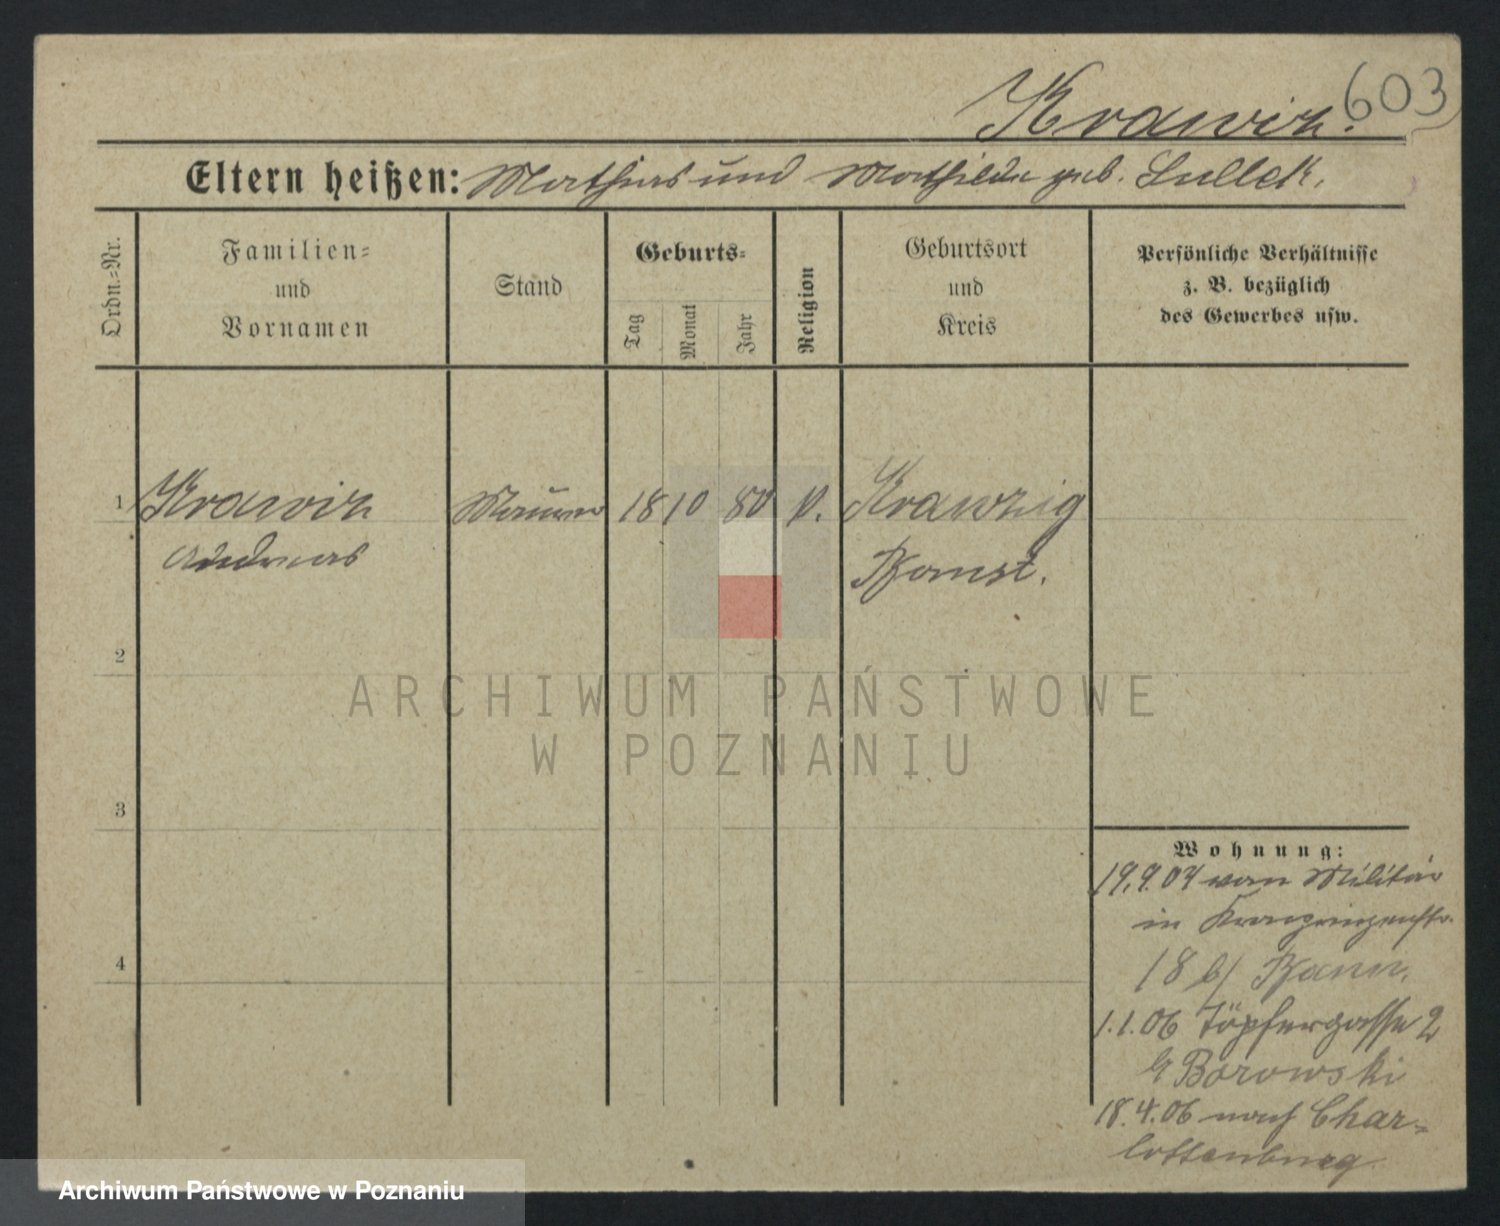 603
Krawiz.
Eltern heißen: Mathias und Mathilde geb. Lulleck.
Ordn.=Nr.
Familien=
und
Vornamen
Stand
Geburts=
Tag
Monat
Jahr
Religion
Geburtsort
und
Kreis
Persönliche Verhältnisse
z. B. bezüglich
des Gewerbes usw.
1 Krawiz Maurer 18 10 80 k. Krawzig
Andreas Bomst.
2
3
4
Wohnung:
19.9.04 vom Militär
in Kronprinzenstr.
18 b/
1.1.06 Töpfergasse 2
b Borowski
18.4.06 nach Char=
lottenburg
ARCHIWUM PAŃSTWOWE
W POZNANIU
Archiwum Państwowe w Poznaniu